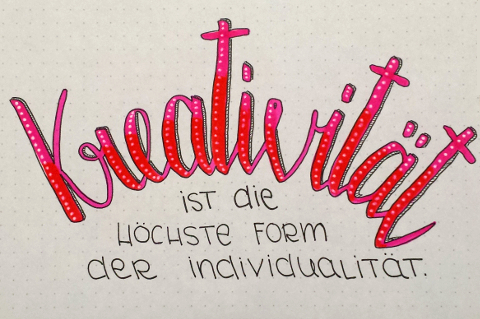 Kreativität
ist die
HÖCHSTE FORM
DER individualität.